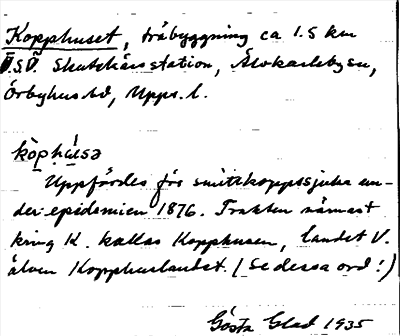 Kopphuset, träbyggning ca 1.5 km
V.S.V. Skutskärs station, Älvkarleby sn,
Örbyhus hd, Upps. l.
köphúsə
Uppfördes för smittkoppssjuka un-
der epidemien 1876. Trakten närmast
kring K. kallas Kopphusen, landet V.
älven Kopphuslandet. (Se dessa ord!)
Gösta Glad 1935